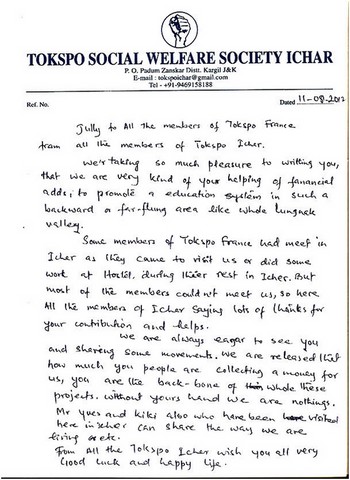 TOKSPO SOCIAL WELFARE SOCIETY ICHAR
P. O. Padum Zanskar Distt. Kargil J&K
E-mail : tokspoichar@gmail.com
Tel - +91-9469158188
Ref. No.
Dated 11-08-2012
Jully to All the members of Tokspo France
fram all the members of Tokspo Icher.
We'r taking so much pleasure to writting you,
that we are very kind of your helping of fanancial
adds, to promote a education system in such a
backward or far-flung area like whole Lungnak
valley.
Some members of Tokspo France had meet in
Icher as they came to visit us or did some
work at Hostel, during their rest in Icher. But
most of the members couldn't meet us, so here
All the members of Icher saying lots of thanks for
your contribution and helps.
We are always eagar to see you
and sharing some movements. We are released that
how much you people are collecting a money for
us, you are the back-bone of whole these
projects. without yours hand we are nothings.
Mr Yves and kiki also who here been visited
here in Icher can share the way we are
living etc.
From All the Tokspo Icher wish you all very
Good luck and happy life.